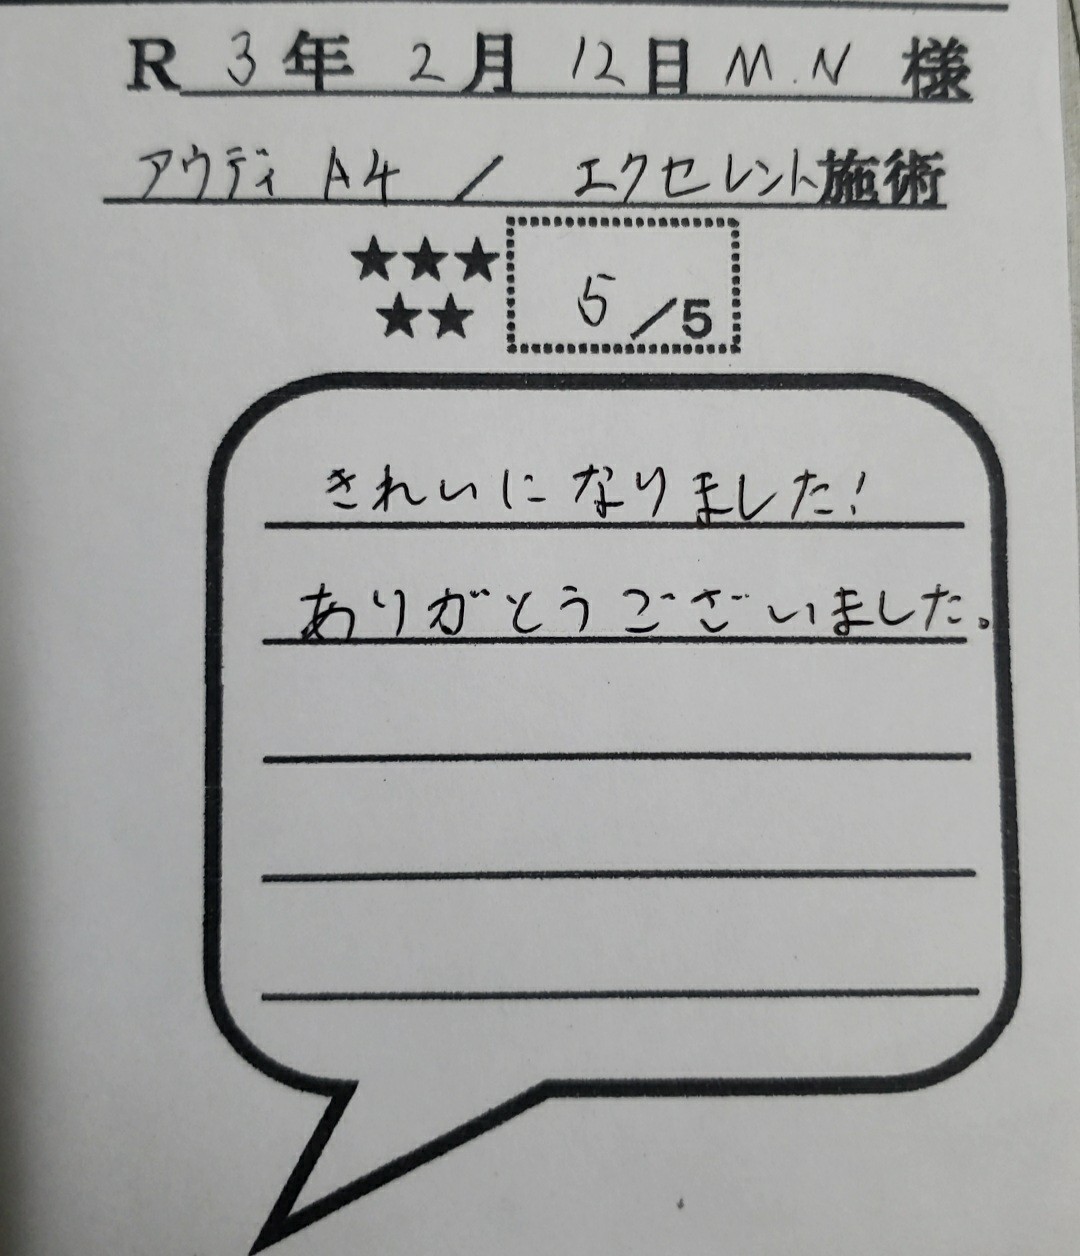 R 3年 2月 12日 M.N 様
アウディ A4 / エクセレント施術
★★★
★★
5/5
きれいになりました!
ありがとうございました。